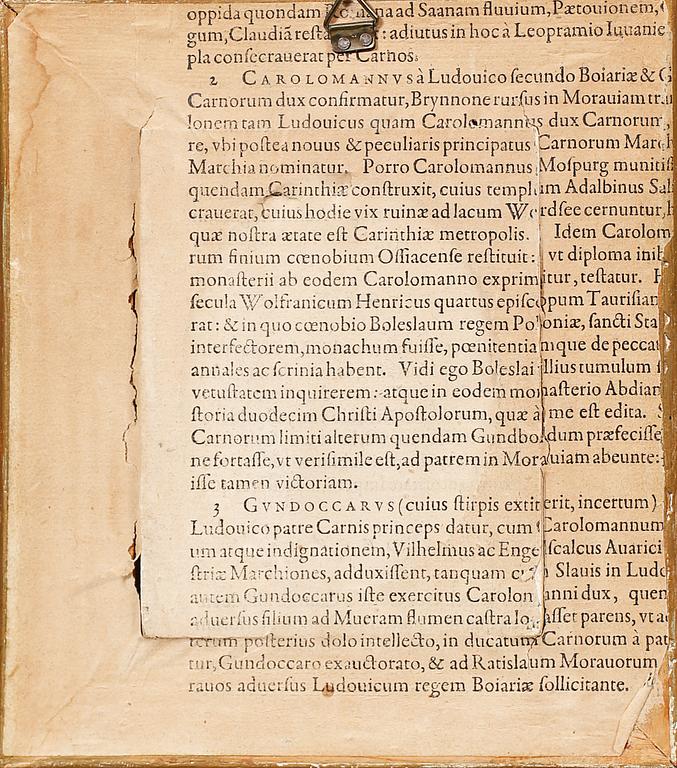 oppida quondam Romana ad Saanam fluuium, Pætouionem,
gum, Claudiā : adiutus in hoc à Leopramio Iuuanie
pla consecrauerat per Carnos.
2 CAROLOMANNVS à Ludouico secundo Boiariæ & G
Carnorum dux confirmatur, Brynnone rursus in Morauiam tra
lonem tam Ludouicus quam Carolomannus dux Carnorum,
re, vbi postea nouus & peculiaris principatus Carnorum March
Marchia nominatur. Porro Carolomannus Mospurg munitiss
quendam Carinthiæ construxit, cuius templum Adalbinus Sal
crauerat, cuius hodie vix ruinæ ad lacum Werdsee cernuntur, h
quæ nostra ætate est Carinthiæ metropolis. Idem Carolom
rum finium cœnobium Ossiacense restituit: vt diploma inib
monasterii ab eodem Carolomanno exprimitur, testatur.
secula Wolfranicum Henricus quartus episcopum Taurisian
rat: & in quo cœnobio Boleslaum regem Poloniæ, sancti Sta
interfectorem, monachum fuisse, pœnitentiamque de peccat
annales ac scrinia habent. Vidi ego Boleslai illius tumulum
vetustatem inquirerem: atque in eodem monasterio Abdian
storia duodecim Christi Apostolorum, quæ à me est edita.
Carnorum limiti alterum quendam Gundboldum præfecisse
ne fortasse, vt verisimile est, ad patrem in Morauiam abeunte:
isse tamen victoriam.
3 GVNDOCCARVS (cuius stirpis extiterit, incertum)
Ludouico patre Carnis princeps datur, cum Carolomannum
um atque indignationem, Vilhelmus ac Engelscalcus Auarici
striæ Marchiones, adduxissent, tanquam Slauis in Ludo
autem Gundoccarus iste exercitus Carolomanni dux, quen
aduersus filium ad Mueram flumen castra locasset parens, vt a
terum posterius dolo intellecto, in ducatum Carnorum à pat
tur, Gundoccaro exauctorato, & ad Ratislaum Morauorum
rauos aduersus Ludouicum regem Boiariæ sollicitante.